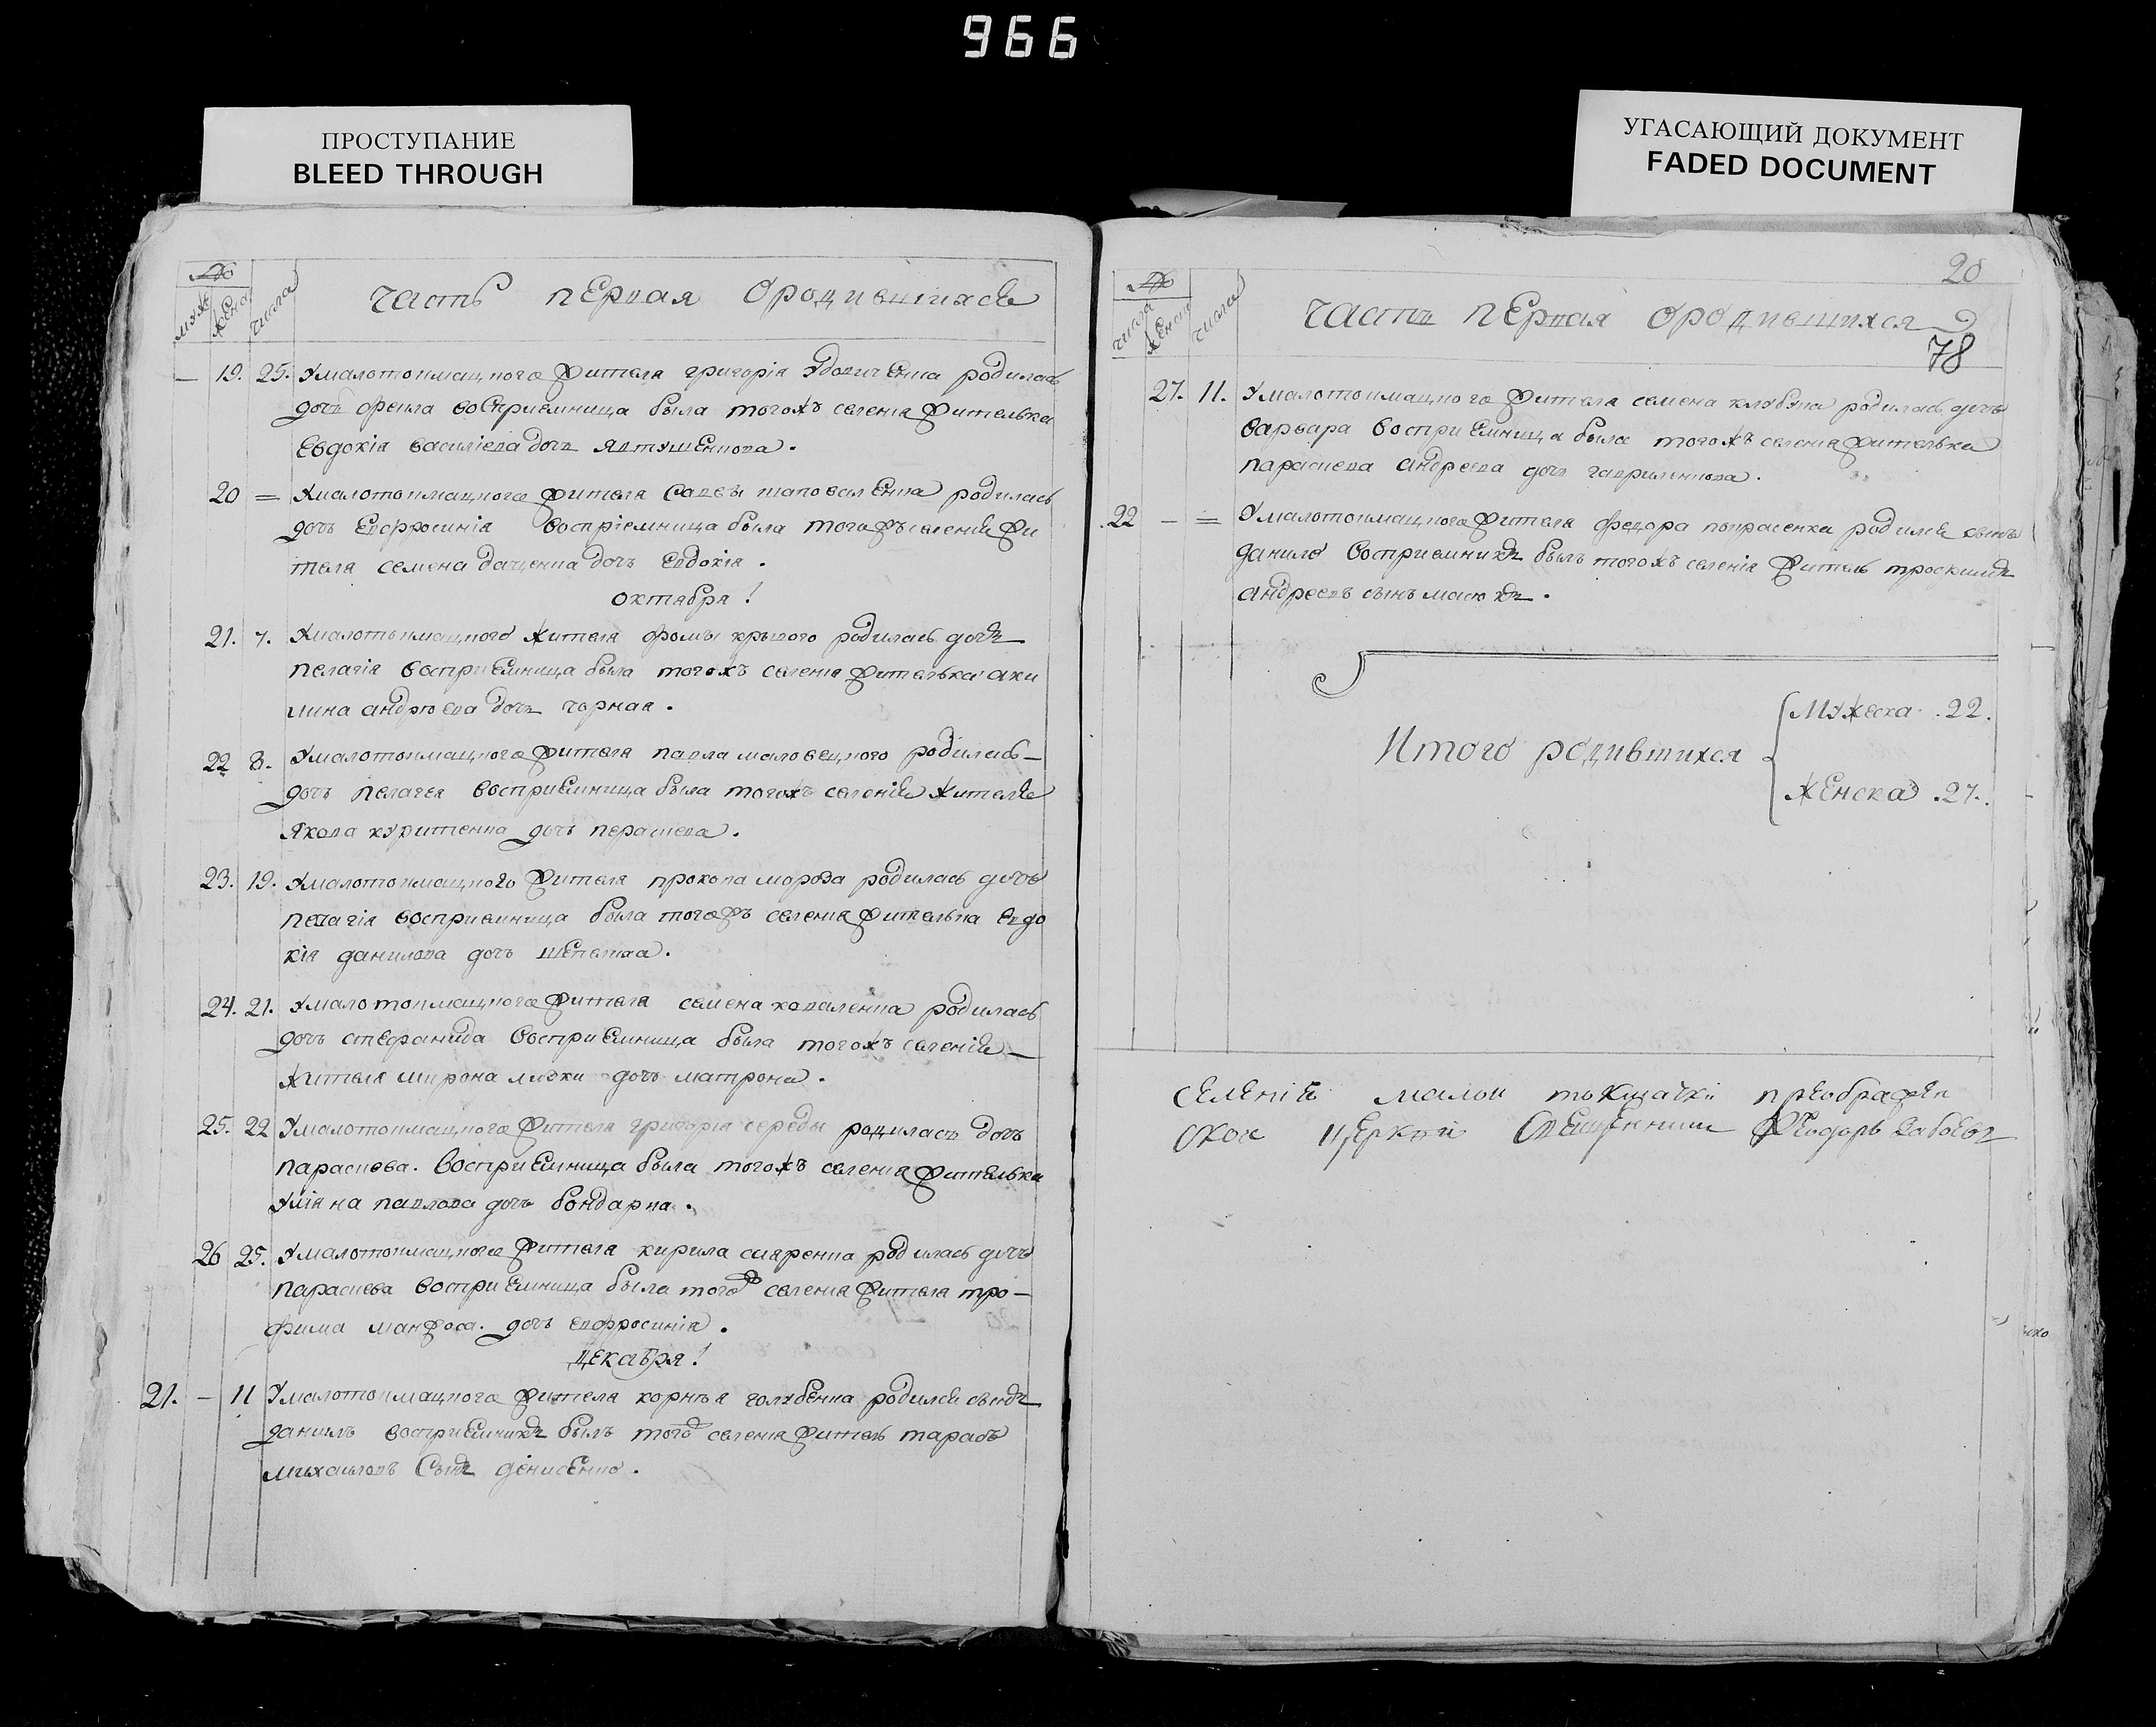 966
ПРОСТУПАНИЕ
BLEED THROUGH
УГАСАЮЩИЙ ДОКУМЕНТ
FADED DOCUMENT
№
муж жена числа
часть первая ородившихся
— 19. 25. Умалотокмацкого жителя григорія Удовиченка родилась
дочь фекла восприемница была тогожъ селенія жителька
Евдокія василіева дочь Явтушенкова.
20 = Умалотокмацкого жителя Саввы шаповаленка родилась
дочь Евфросинія воспріемница была тогожъ селенія жи
теля семена даценка дочь евдокія.
октября!
21. 7. Умалотокмацкого жителя фомы кривого родилась дочь
пелагія восприемница была тогожъ селенія жителька аки
лина андрѣева дочь чорная.
22 8. Умалотокмацкого жителя павла маловецкого родилась—
дочь пелагея восприемница была тогожъ селенія жителя
Якова куритенка дочь параскева.
23. 19. Умалотокмацкого жителя прокопа мороза родилась дочь
пелагія восприемница была тогожъ селенія жителька евдо
кія данилова дочь шепетка.
24. 21. Умалотокмацкого жителя семена коваленка родилась
дочь стефанида восприемница была тогожъ селенія—
жителя мирона дочь матрона.
25. 22 Умалотокмацкого жителя григорія середы родилась дочь
параскева. восприемница была тогожъ селенія жителька
Уліяна павлова дочь бондарка.
26 25. Умалотокмацкого жителя кирила родилась дочь
параскева восприемница была тогож селенія жителя тро—
фима манжоса. дочь евфросинія.
Декабря!
21. — 11 Умалотокмацкого жителя корнѣя голубенка родился сынъ
данилъ восприемникъ былъ того селенія житель тарасъ
михаиловъ Сынъ денисенко.
20
№
числа женска числа
часть первая ородившихся
78
27. 11. Умалотокмацкого жителя семена родилась дочь
варвара восприемница была тогожъ селенія жителька
параскева андреева дочь гавриленкова.
22 — = Умалотокмацкого жителя федора родился сынъ
данило восприемникъ былъ тогожъ селенія житель
андреевъ сынъ масюкъ.
Итого родившихся
Мужеска .22.
Женска .27.
селенія малои токмачки преображен
ской церкви Священник Феодоръ